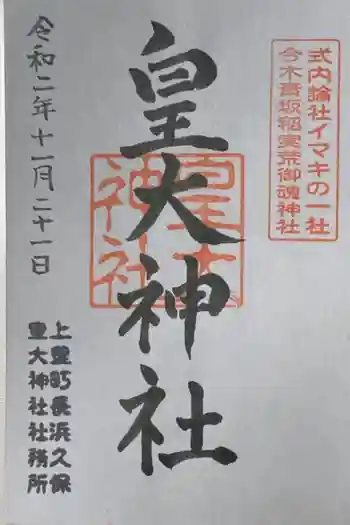 式内論社イマキの一社
今木青坂稲実荒御魂神社
皇大神社
皇大
神社
令和二年十一月二十一日
上豊町長浜久保
皇大神社社務所